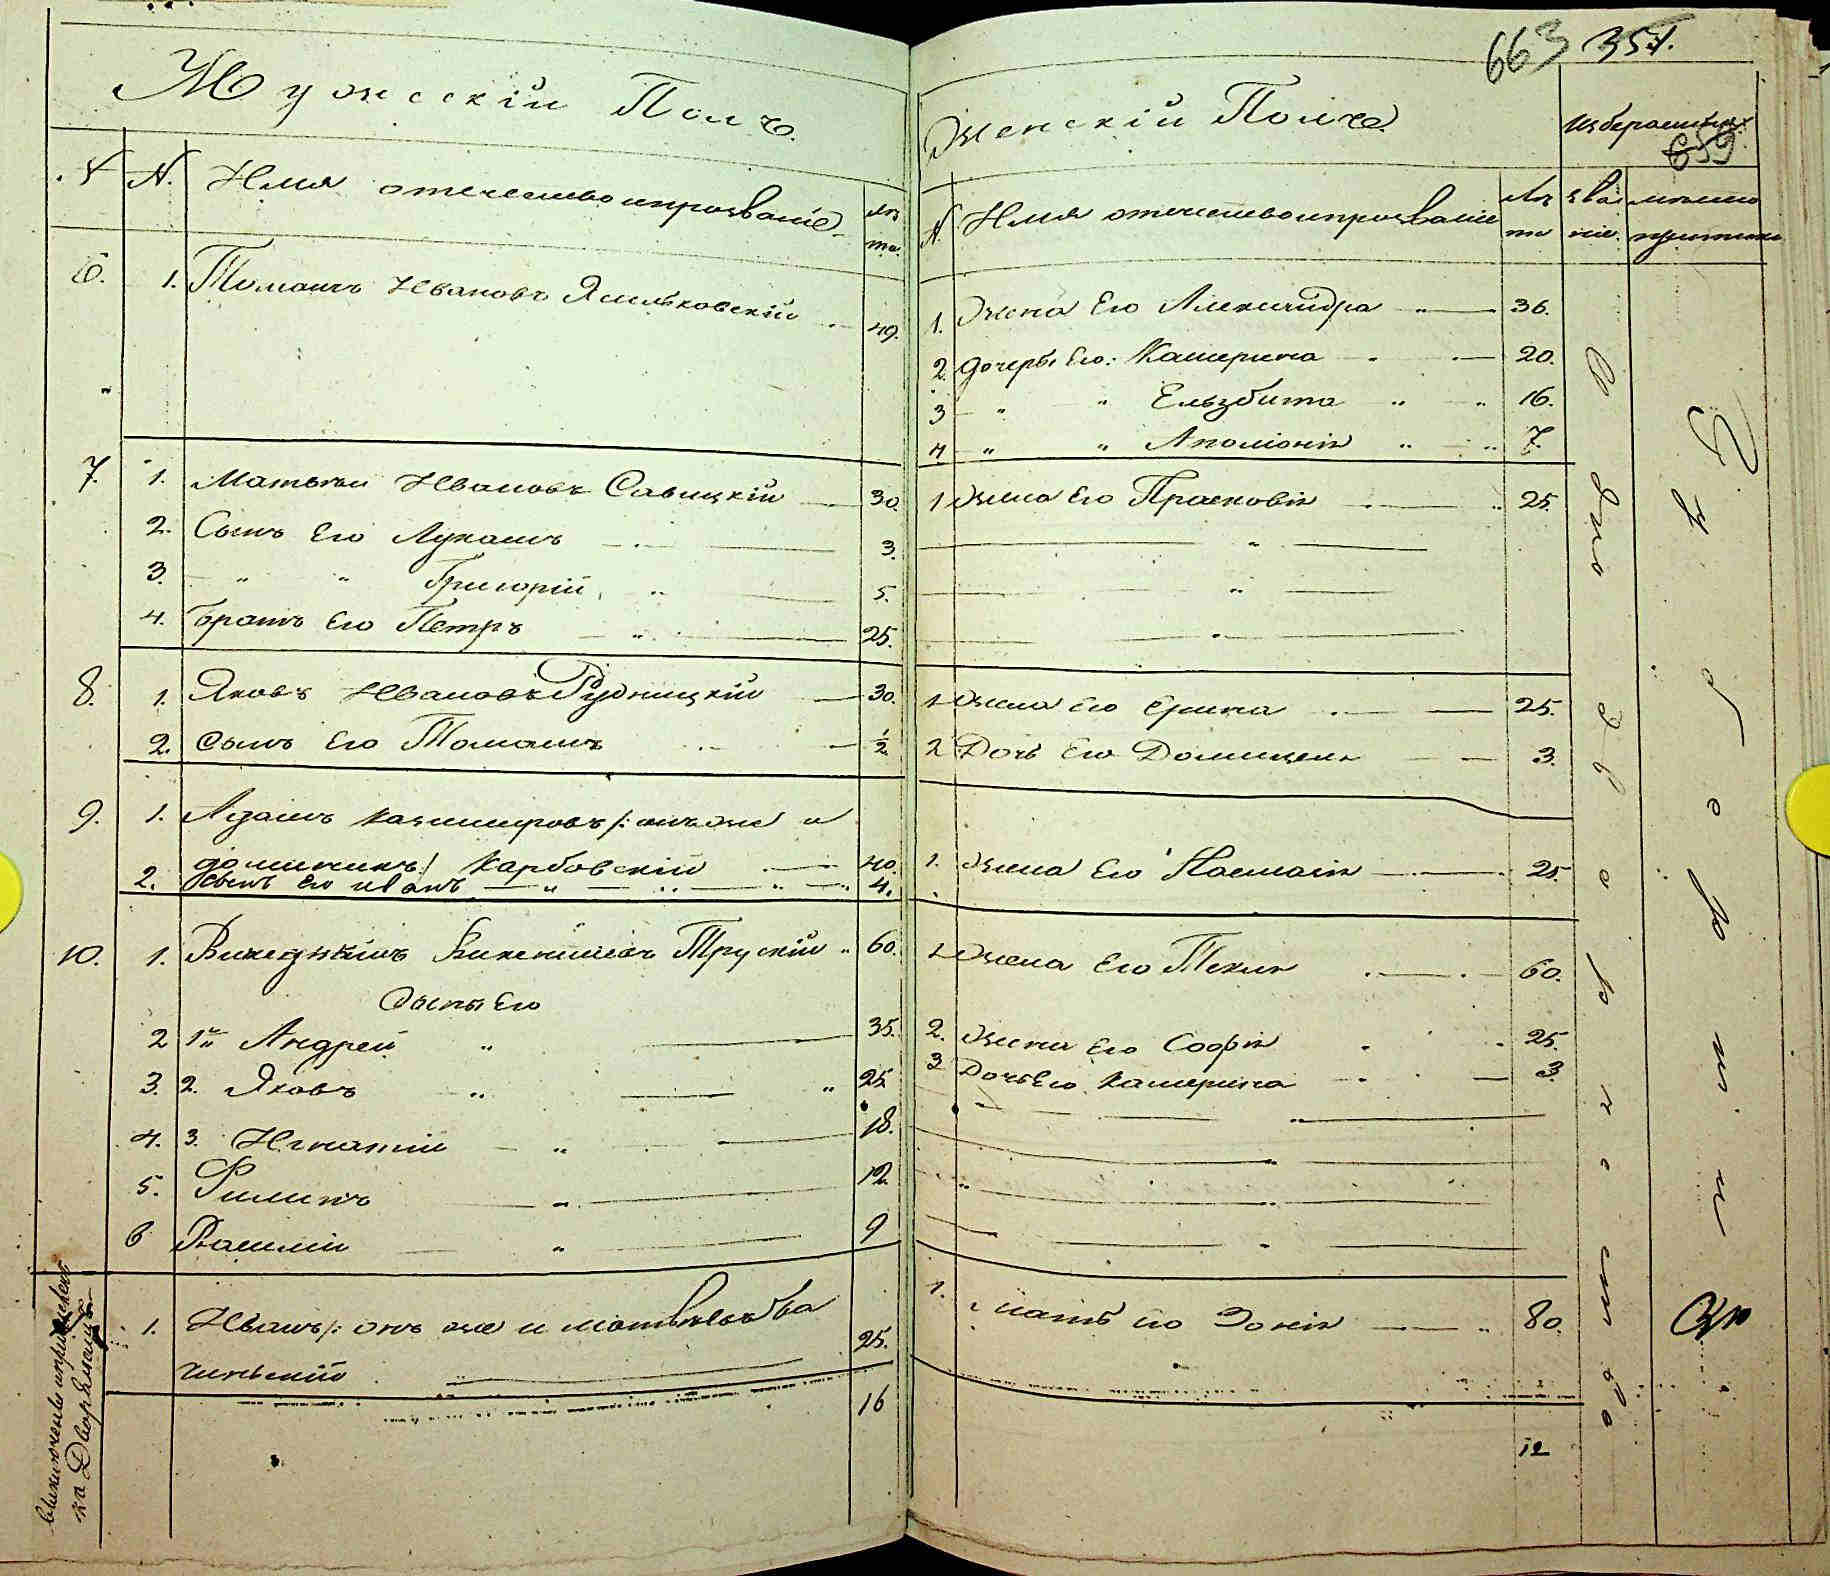 Мужескій Полъ.
№ № Имя отечество и прозваніе лѣта.
6. 1. Томашъ Ивановъ Ясильковскій 49.
7. 1. Матвѣй Ивановъ Савицкій 30.
2. Сынъ Его Лукашъ 3.
3. " " Григорій " 5.
4. братъ Его Петръ " 25.
8. 1. Яковъ Ивановъ Рудницкій 30.
2. Сынъ Его Томашъ ½
9. 1. Адамъ Казимировъ /: онъ же и
доминикъ:/ Карбовскій 40.
2. Сынъ Его иванъ 4.
10. 1. Викентіевъ Трускій 60.
Сыны Его
2 1й Андрей " 35.
3. 2. Яковъ " 25
4. 3. Игнатій " 18.
5. Филипъ " 12
6 Василій " 9
исключенъ
ка Дворянство
1. Иванъ /: онъ же и
чинскій " 25.
16
663 351.
Женскій Полъ.
Изберательных
659
№ Имя отечество и прозваніе Лѣта званіе.
1. Жена Его Александра 36.
2. дочери Его: Катерина 20.
3 " " Ельзбита " " 16.
4 " " Аполіонія " " 7.
1 Жена Его Прасковія 25.
1 Жена Его Ерина 25.
2 Дочь Его Домицеля 3.
1. Жена Его Настасія 25.
1 Жена Его Текля 60.
2. Жена Его Софія 25.
3 Дочь Его Катерина 3.
1. мать его Зонія 80.
12
Однодворческаго